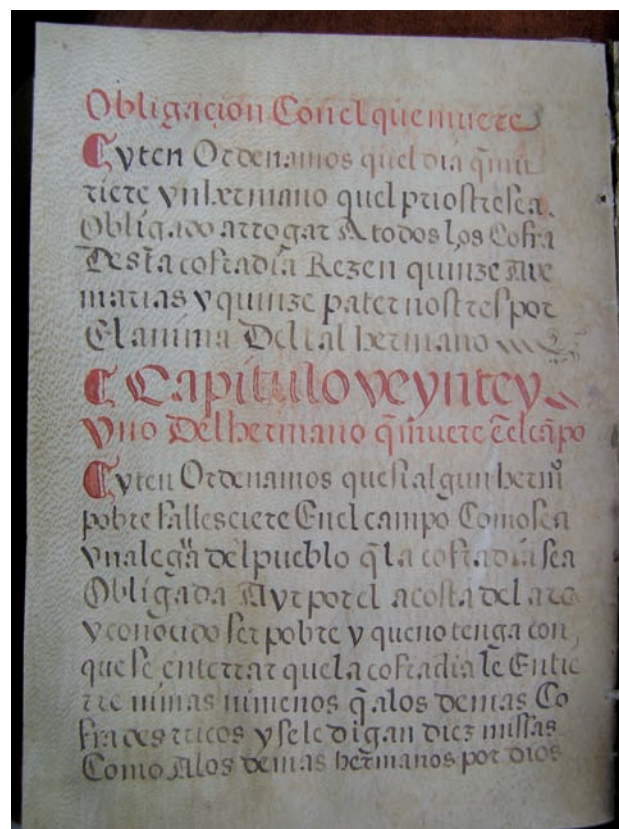 Obligacion Con el que muere
Cyten Ordenamos quel dia q̃ mu
riere vn hermano quel prioste sea
Obligado a rrogar A todos los Cofra
Desta cofradia Rezen quinze Ave
marias y quinze paternostres por
El anima Del tal hermano
C Capitulo veynte y
Vno Del hermano q̃ muere ẽ el cãpo
Cyten Ordenamos que si algun herm̃o
pobre fallesciere En el campo Como sea
vna leg̃a del pueblo q̃ la cofradia sea
Obligada A yr por el a costa del arca
y conoçido ser pobre y que no tenga con
que se enterrar que la cofradia le Entie
rre ni mas ni menos q̃ a los demas Co
frades rricos y se le digan diez missas
Como A los demas herm̃anos por dios